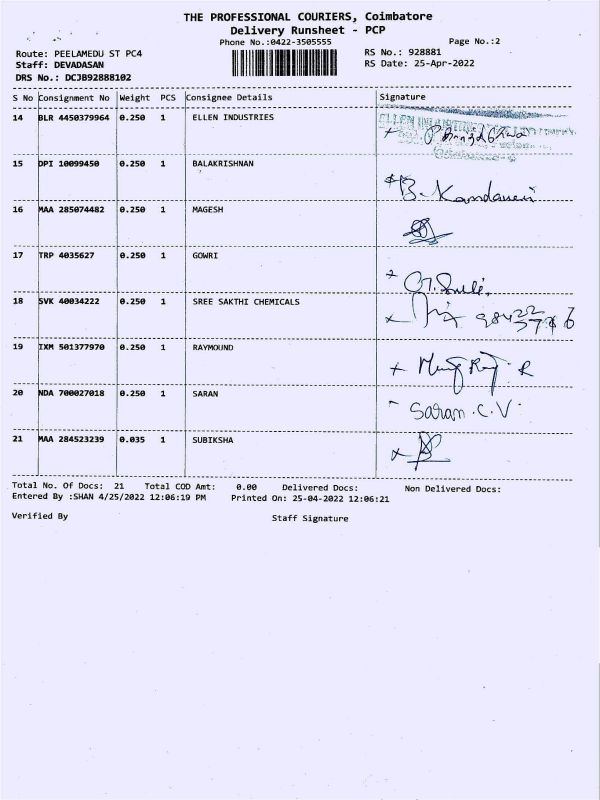 THE PROFESSIONAL COURIERS, Coimbatore
Delivery Runsheet - PCP
Phone No.:0422-3505555
Page No.:2
Route: PEELAMEDU ST PC4
RS No.: 928881
Staff: DEVADASAN
RS Date: 25-Apr-2022
DRS No.: DCJB92888102
S No Consignment No Weight PCS Consignee Details Signature
14 BLR 4450379964 0.250 1 ELLEN INDUSTRIES
15 DPI 10099450 0.250 1 BALAKRISHNAN
B. Kandaveni
16 MAA 285074482 0.250 1 MAGESH
17 TRP 4035627 0.250 1 GOWRI
18 SVK 40034222 0.250 1 SREE SAKTHI CHEMICALS
19 IXM 501377970 0.250 1 RAYMOUND
20 NDA 700027018 0.250 1 SARAN
Saran.C.V.
21 MAA 284523239 0.035 1 SUBIKSHA
Total No. Of Docs: 21 Total COD Amt: 0.00 Delivered Docs: Non Delivered Docs:
Entered By :SHAN 4/25/2022 12:06:19 PM Printed On: 25-04-2022 12:06:21
Verified By Staff Signature